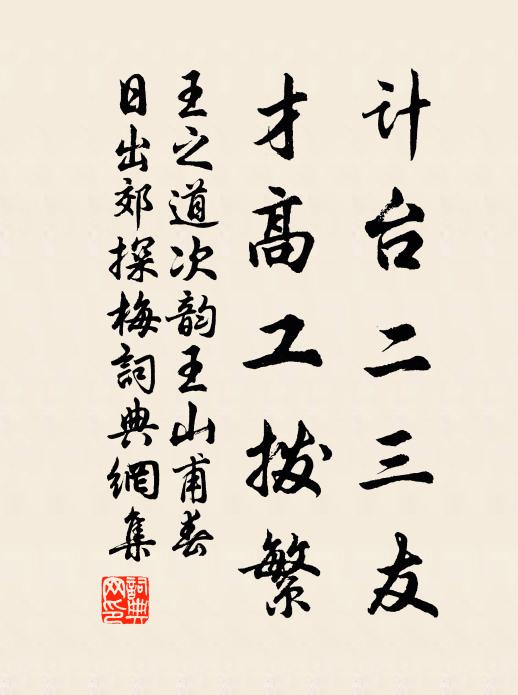 计台二三友
才高工拨繁
王之道次韵王山甫春
日出郊探梅詞典網集
詞典网印